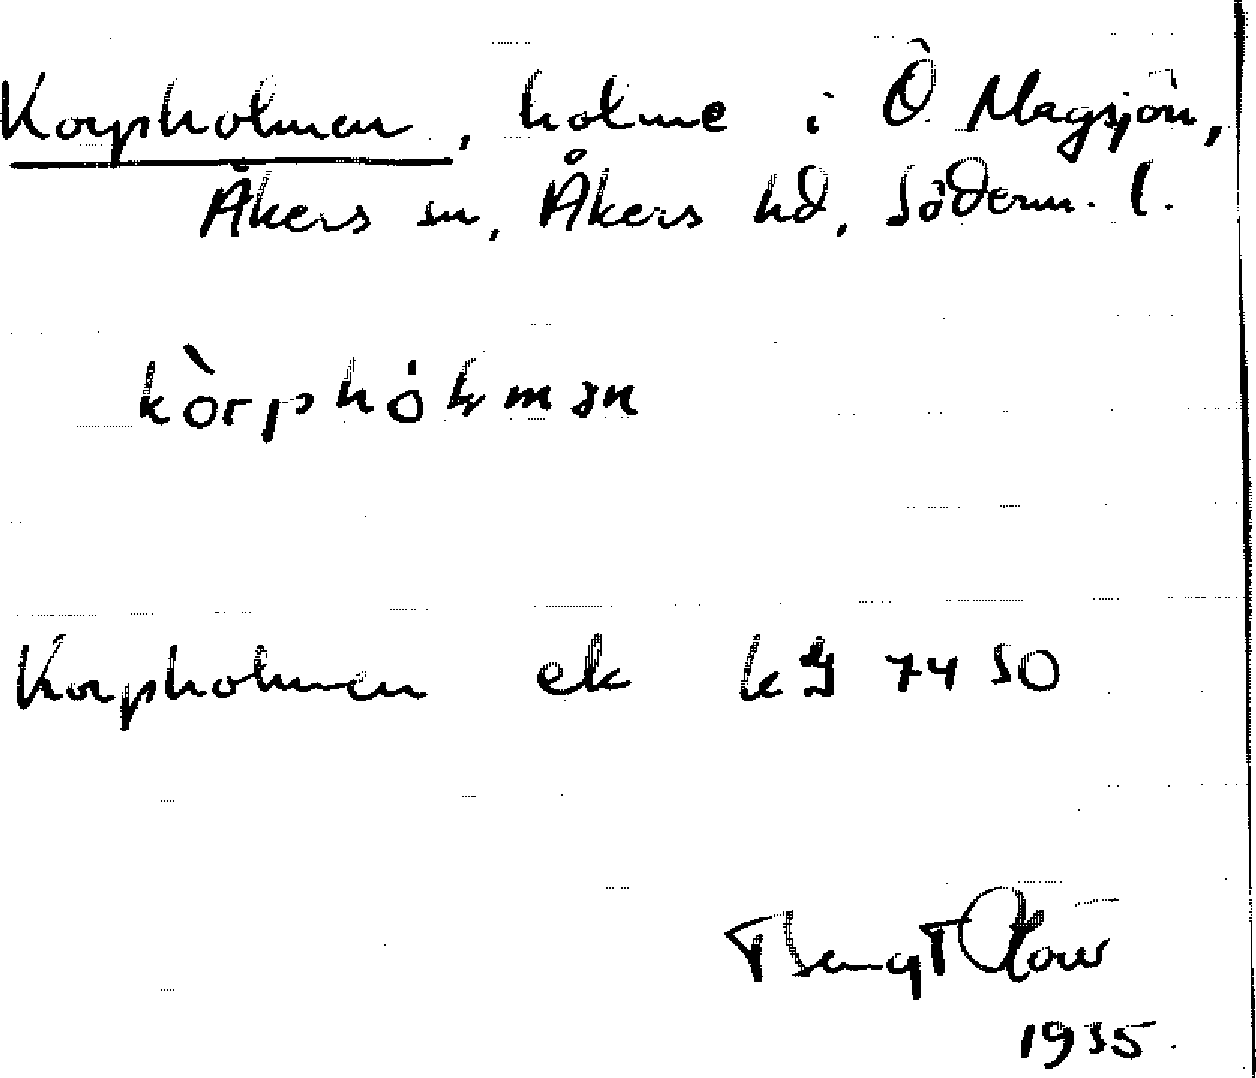 Korpholmen, holme i Ö Magsjön,
Åkers sn, Åkers hd, Söderm. l.
kòrphòlmən
Korpholmen ek 7450
Bengt
1935.